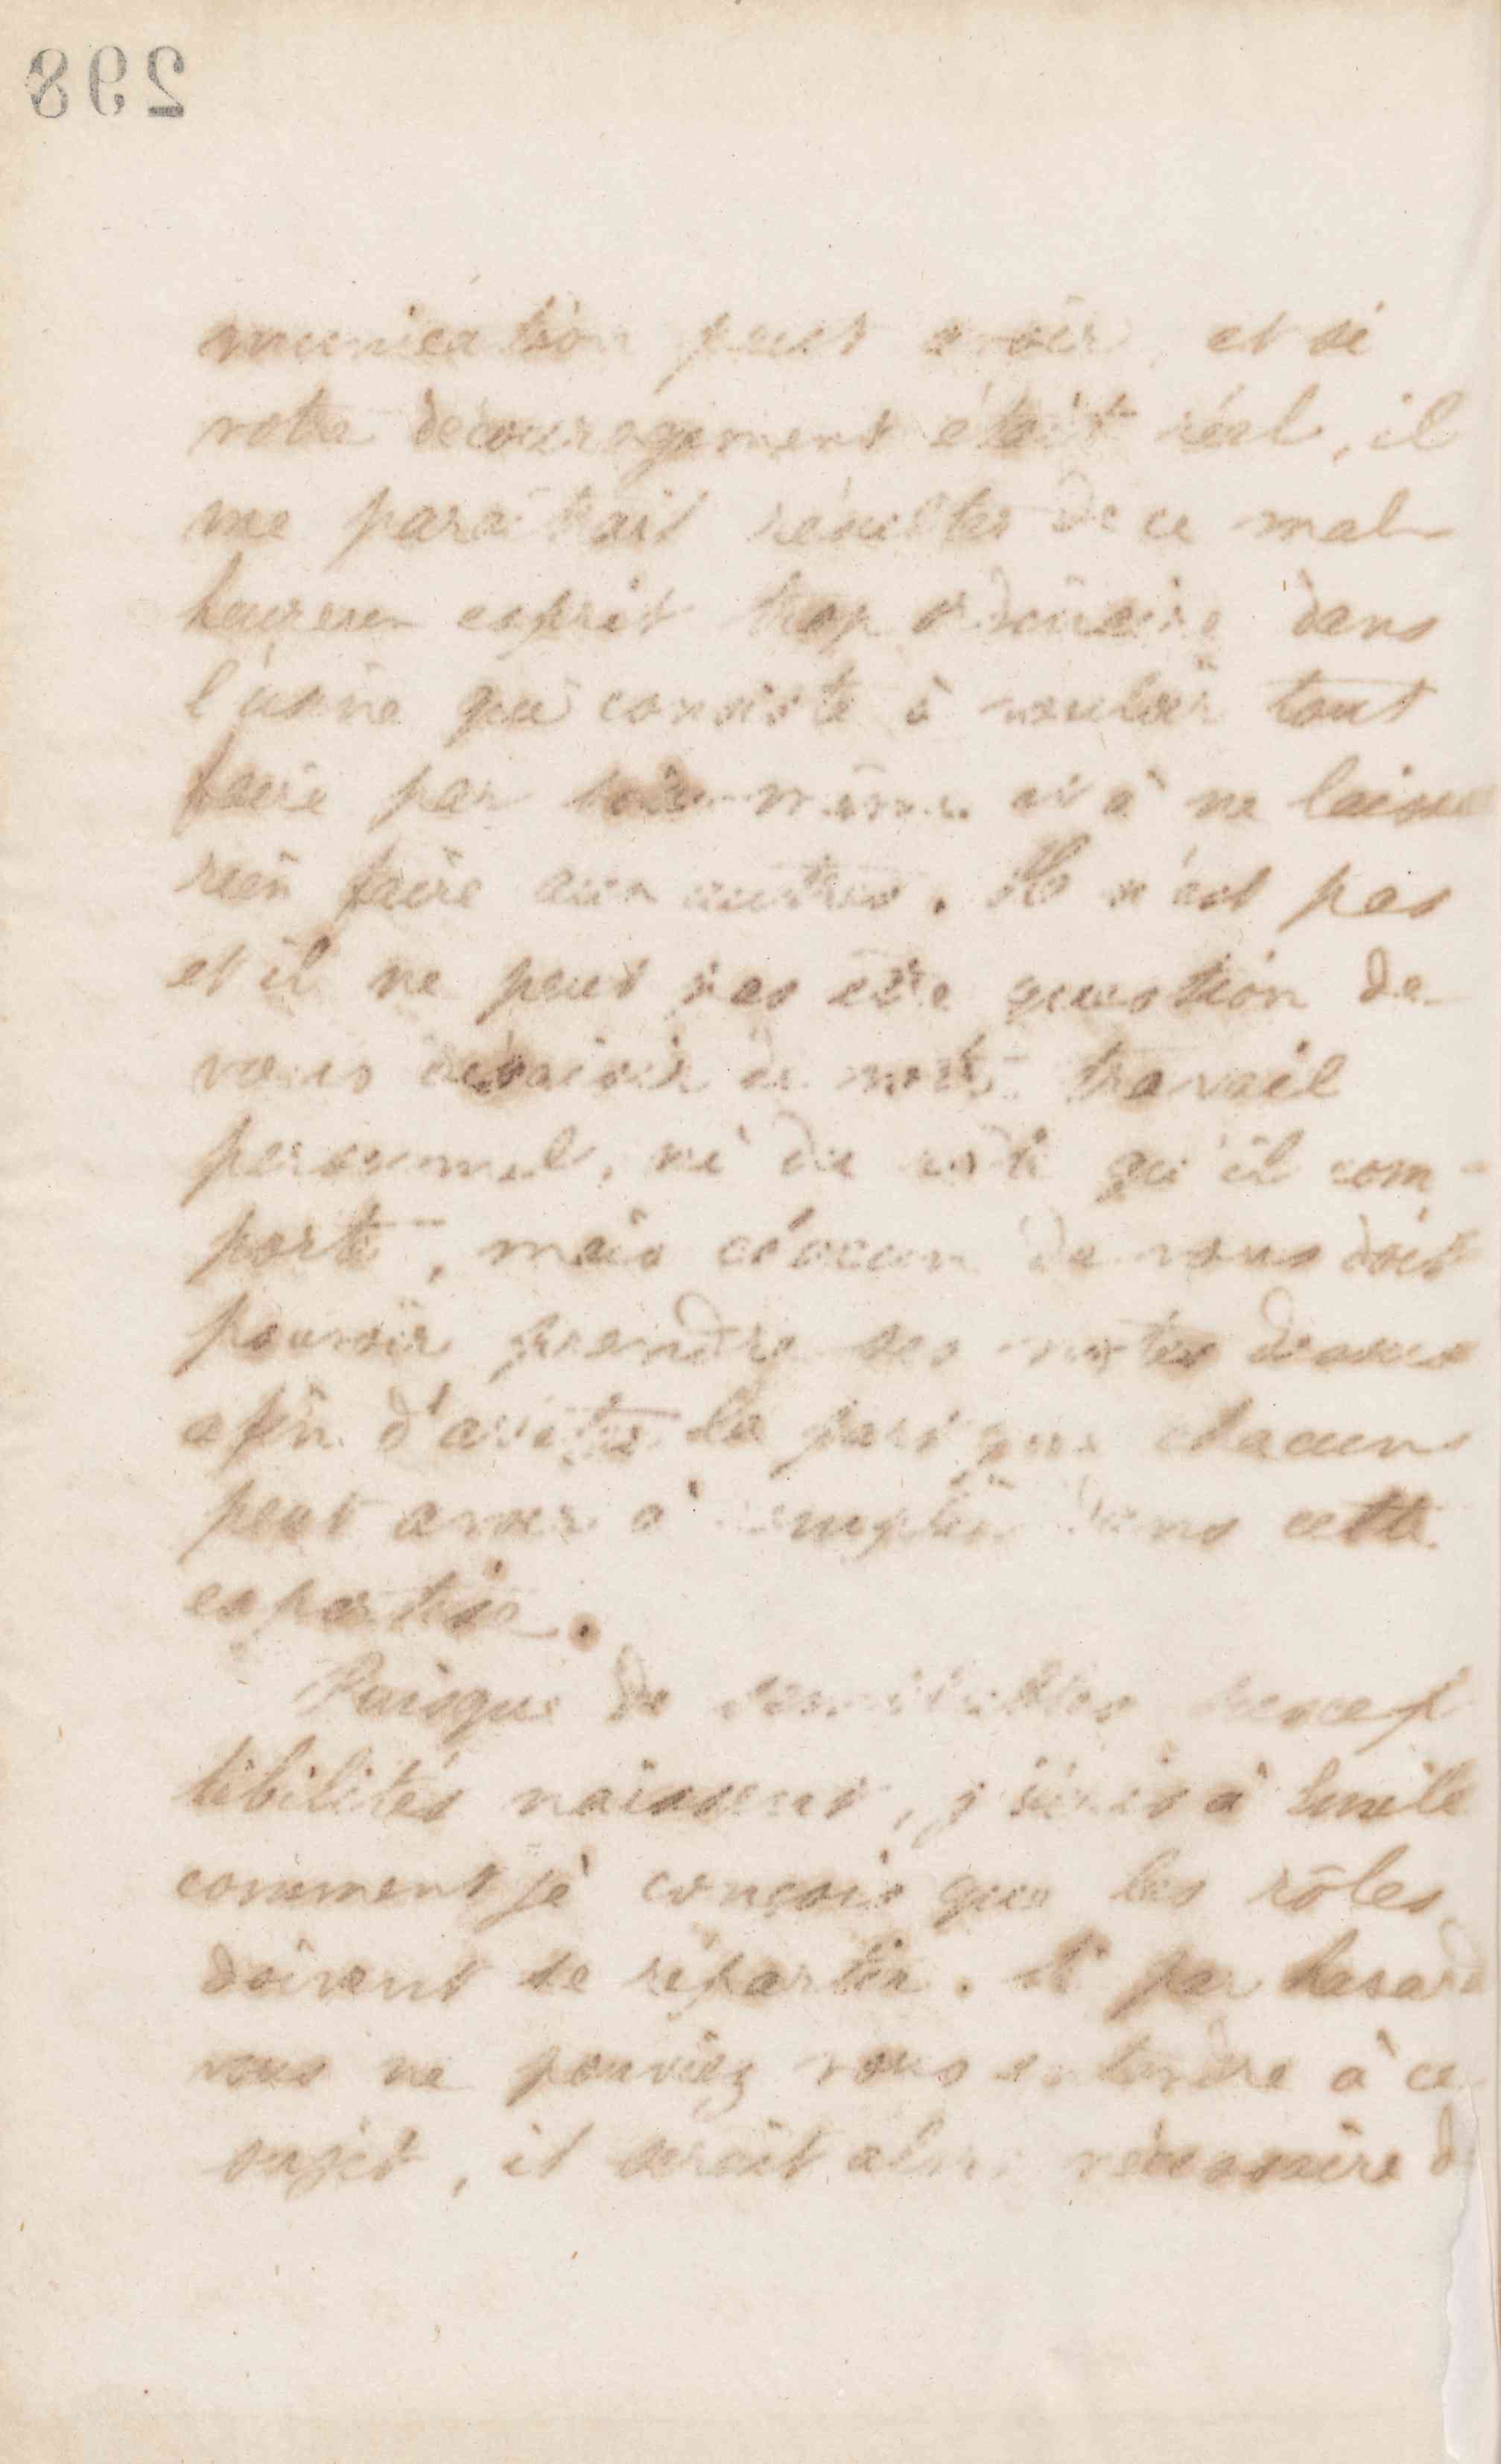 298
munication peut avoir, et si
votre découragement était réel, il
me paraîtrait résulter de ce mal-
heureux esprit trop ordinaire dans
l'usine qui consiste à vouloir tout
faire par soi-même et à ne laisser
rien faire aux autres. Il n'est pas
et il ne peut pas être question de
vous dessaisir de votre travail
personnel, ni du rôle qu'il com-
porte, mais chacun de vous doit
pouvoir prendre ses notes dessus
afin d'arrêter la part que chacun
peut avoir à remplir dans cette
expertise.
Puisque de semblables suscep
tibilités naissent, j'écris à Emile
comment je conçois que les rôles
doivent se répartir. Si par hasard
vous ne pouviez vous entendre à ce
sujet, il serait alors nécessaire d